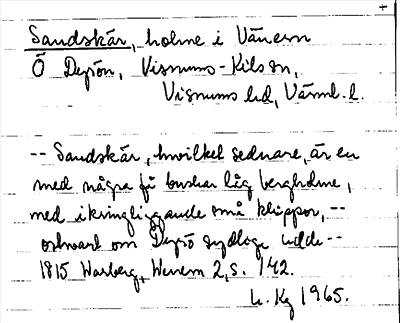 +
Sandskär, holme i Vänern
Ö Dyrön, Visnums-Kils sn,
Visnums hd, Värml. l.
-- Sandskär, hvilket sednare, är en
med några få buskar låg bergholme,
med ikringliggande små klippor, --
ostvart om Dyrö sydligе udde --
1815 Warberg, Wenern 2, s. 142.
L. Kg 1965.